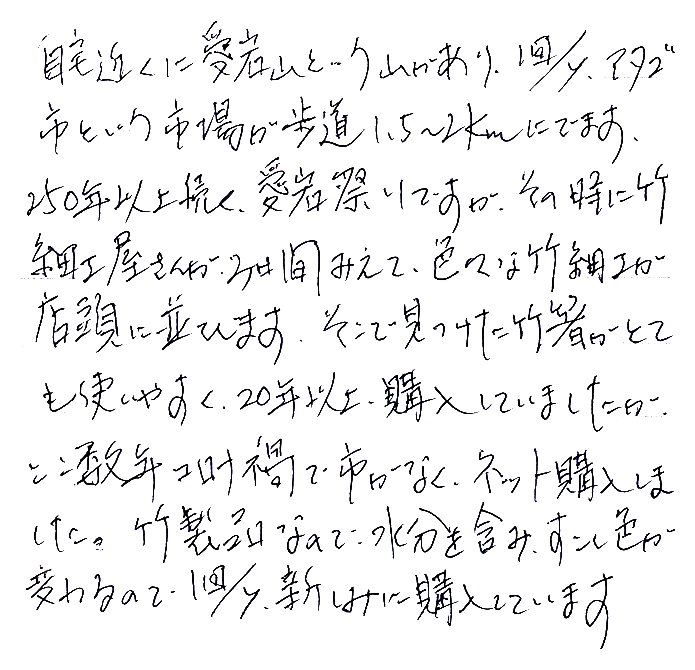 自宅近くに愛宕山という山があり、1回/y、アタゴ
市という市場が歩道1.5～2kmにでます、
250年以上続く、愛宕祭りですが、その時に竹
細工屋さんが、2日間みえて、色々な竹細工が
店頭に並びます、そこで見つけた竹箸がとて
も使いやすく、20年以上、購入していましたが、
ここ数年コロナ禍で市がなく、ネット購入しま
した。竹製品なので、水分を含み、すこし色が
変わるので、1回/y、新しく購入しています